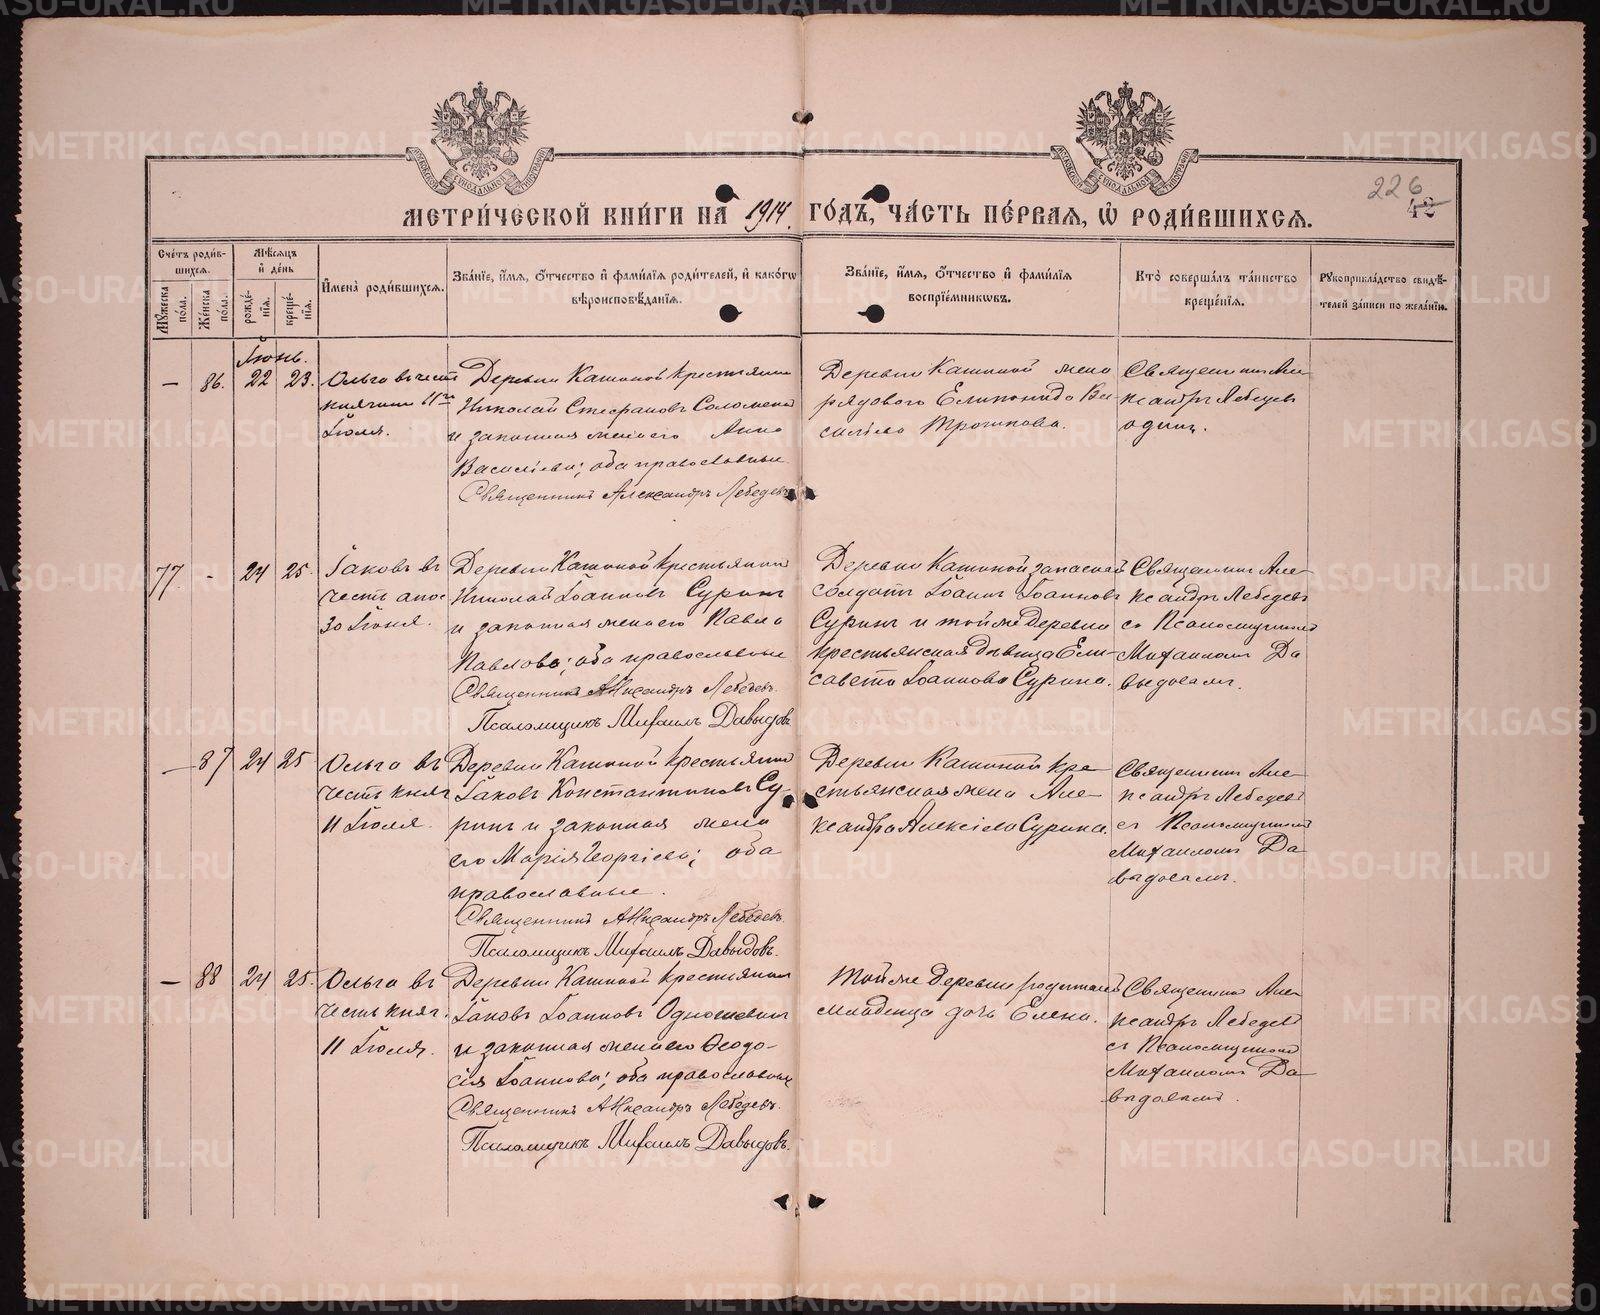 226
42
МЕТРИ́ЧЕСКОЙ КНИ́ГИ НА 1914 ГО́ДЪ, ЧА́СТЬ ПЕ́РВАЯ, Ѡ҆ РОДИ́ВШИХСЯ.
Сче́тъ роди́в-
шихся.
Мꙋ́жеска по́ла.
Же́нска по́ла.
Мѣ́сяцъ и҆ де́нь
рожде́нїя.
креще́нїя.
И҆мена̀ роди́вшихся.
Зва́нїе, и҆́мя, ѻ҆́тчество и҆ фами́лїя роди́телей, и҆ како́гѡ
вѣроисповѣ́данїя.
Зва́нїе, и҆́мя, ѻ҆́тчество и҆ фами́лїя
воспрїе́мникѡвъ.
Кто̀ соверша́лъ та́инство
креще́нїя.
Рꙋкоприкла́дство свидѣ́-
телей за́писи по жела́нїю.
Іюнь.
— 86. 22 23.
Ольга въ честь
княгини 11го
Іюля.
Деревни Кашиной крестьянинъ
Николай Стефановъ Соломеинъ
и законная жена его Анна
Васильева; оба православные
Священникъ Александръ Лебедевъ
Деревни Кашиной жена
рядового Елпинида Ва-
сильева Трошкова.
Священникъ Але-
ксандръ Лебедевъ
одинъ.
77. - 24 25.
Іаковъ въ
честь апос
30 Іюня.
Деревни Кашиной крестьянинъ
Николай Іоанновъ Суринъ
и законная жена его Павла
Павлова; оба православные
Священникъ Александръ Лебедевъ
Псаломщикъ Михаилъ Давыдовъ
Деревни Кашиной запасной
солдатъ Іоаннъ Іоанновъ
Суринъ и той же деревни
крестьянская дѣвица Ели-
савета Іоаннова Сурина.
Священникъ Але-
ксандръ Лебедевъ
съ Псаломщикомъ
Михаиломъ Да
выдовымъ.
— 87 24 25
Ольга въ
честь княг
11 Іюля.
Деревни Кашиной крестьянинъ
Іаковъ Константиновъ Су-
ринъ и законная жена
его Марія Георгіева; оба
православные.
Священникъ Александръ Лебедевъ.
Псаломщикъ Михаилъ Давыдовъ.
Деревни Кашиной кре-
стьянская жена Але-
ксандра Алексіева Сурина.
Священникъ Але-
ксандръ Лебедевъ
съ Псаломщикомъ
Михаиломъ Да
выдовымъ.
— 88 24 25.
Ольга въ
честь княг.
11 Іюля.
Деревни Кашиной крестьянинъ
Іаковъ Іоанновъ Одношевинъ
и законная жена его Ѳеодо-
сія Іоаннова; оба православные
Священникъ Александръ Лебедевъ.
Псаломщикъ Михаилъ Давыдовъ.
Той же деревни родителей
младенца дочь Елена.
Священникъ Але
ксандръ Лебедевъ
съ Псаломщикомъ
Михаиломъ Да
выдовымъ.
METRIKI.GASO-URAL.RU